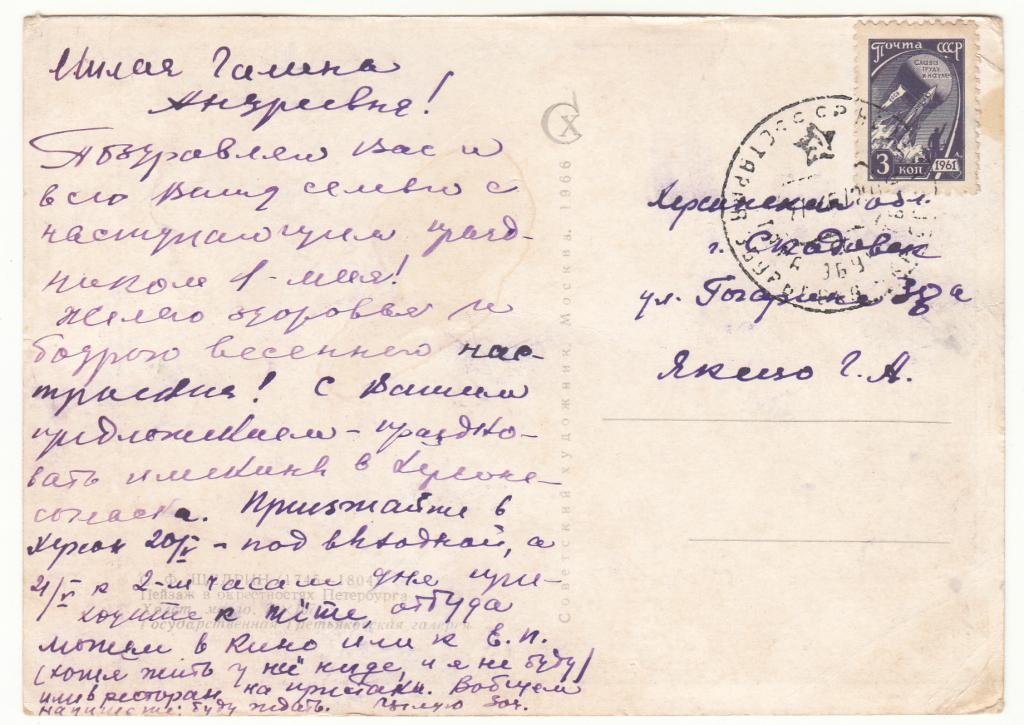 Милая Галина
Андреевна!
Поздравляем Вас и
всю Вашу семью с
наступающим празд-
ником 1-мая!
Желаю здоровья и
бодрого весеннего нас-
троения! С Вашим
предложением - праздно-
вать именины в Херсоне
согласна. Приезжайте в
Херсон 20/V - под выходной, а
21/V к 2-м часам дня при-
ходите к тёте, оттуда
можем в кино или к Е. П.
(хотя жить у неё нигде, и я не буду)
или в ресторан на пристани. Вобщем
напишете: буду ждать. Целую Зоя.
С. Ф. ЩЕДРИН (1745-1804)
Пейзаж в окрестностях Петербурга
Холст, масло.
Государственная Третьяковская галерея
Советский художник. Москва. 1966
ПОЧТА СССР
СЛАВА
ТРУДУ
И НАУКЕ
3 КОП 1961
Херсонская обл.
г. Скадовск
ул. Гагарина 38а
Якешо Г. А.